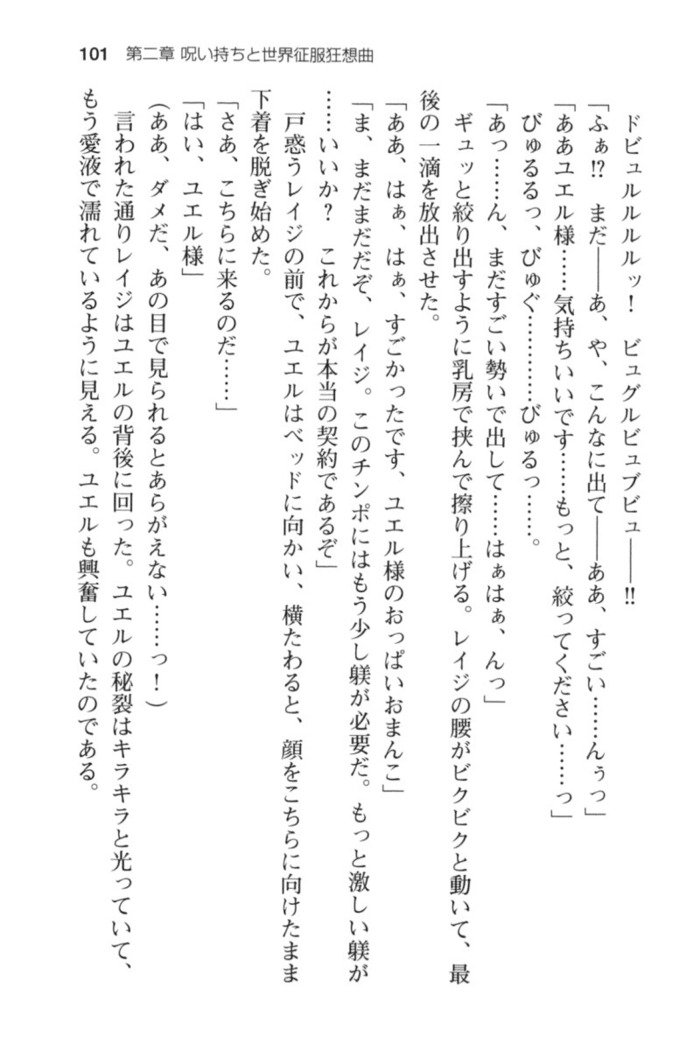 101　第二章 呪い持ちと世界征服狂想曲
ドビュルルルルッ！　ビュグルビュブビュ――!!
「ふぁ!?　まだ――あ、や、こんなに出て――ああ、すごい……んぅっ」
「ああユエル様……気持ちいいです……もっと、絞ってください……っ」
びゅるるっ、びゅぐ…………びゅるっ……。
「あっ……ん、まだすごい勢いで出して……はぁはぁ、んっ」
ギュッと絞り出すように乳房で挟んで擦り上げる。レイジの腰がビクビクと動いて、最
後の一滴を放出させた。
「ああ、はぁ、はぁ、すごかったです、ユエル様のおっぱいおまんこ」
「ま、まだまだだぞ、レイジ。このチンポにはもう少し躾が必要だ。もっと激しい躾が
……いいか？　これからが本当の契約であるぞ」
戸惑うレイジの前で、ユエルはベッドに向かい、横たわると、顔をこちらに向けたまま
下着を脱ぎ始めた。
「さあ、こちらに来るのだ……」
「はい、ユエル様」
（ああ、ダメだ、あの目で見られるとあらがえない……っ！）
言われた通りレイジはユエルの背後に回った。ユエルの秘裂はキラキラと光っていて、
もう愛液で濡れているように見える。ユエルも興奮していたのである。